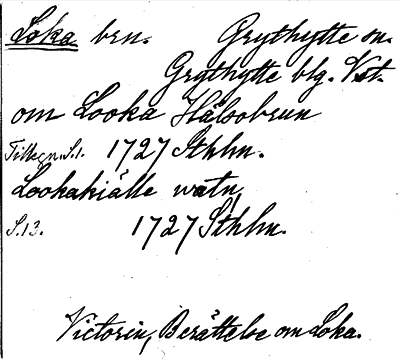 Loka brn. Grythytte sn.
Grythytte blg. Vstm.
om Looka Hälsobrun
Tillegn. S.1. 1727 Sthlm.
Lookakiälle watn,
S.13. 1727 Sthlm.
Victorin, Berättelse om Loka.